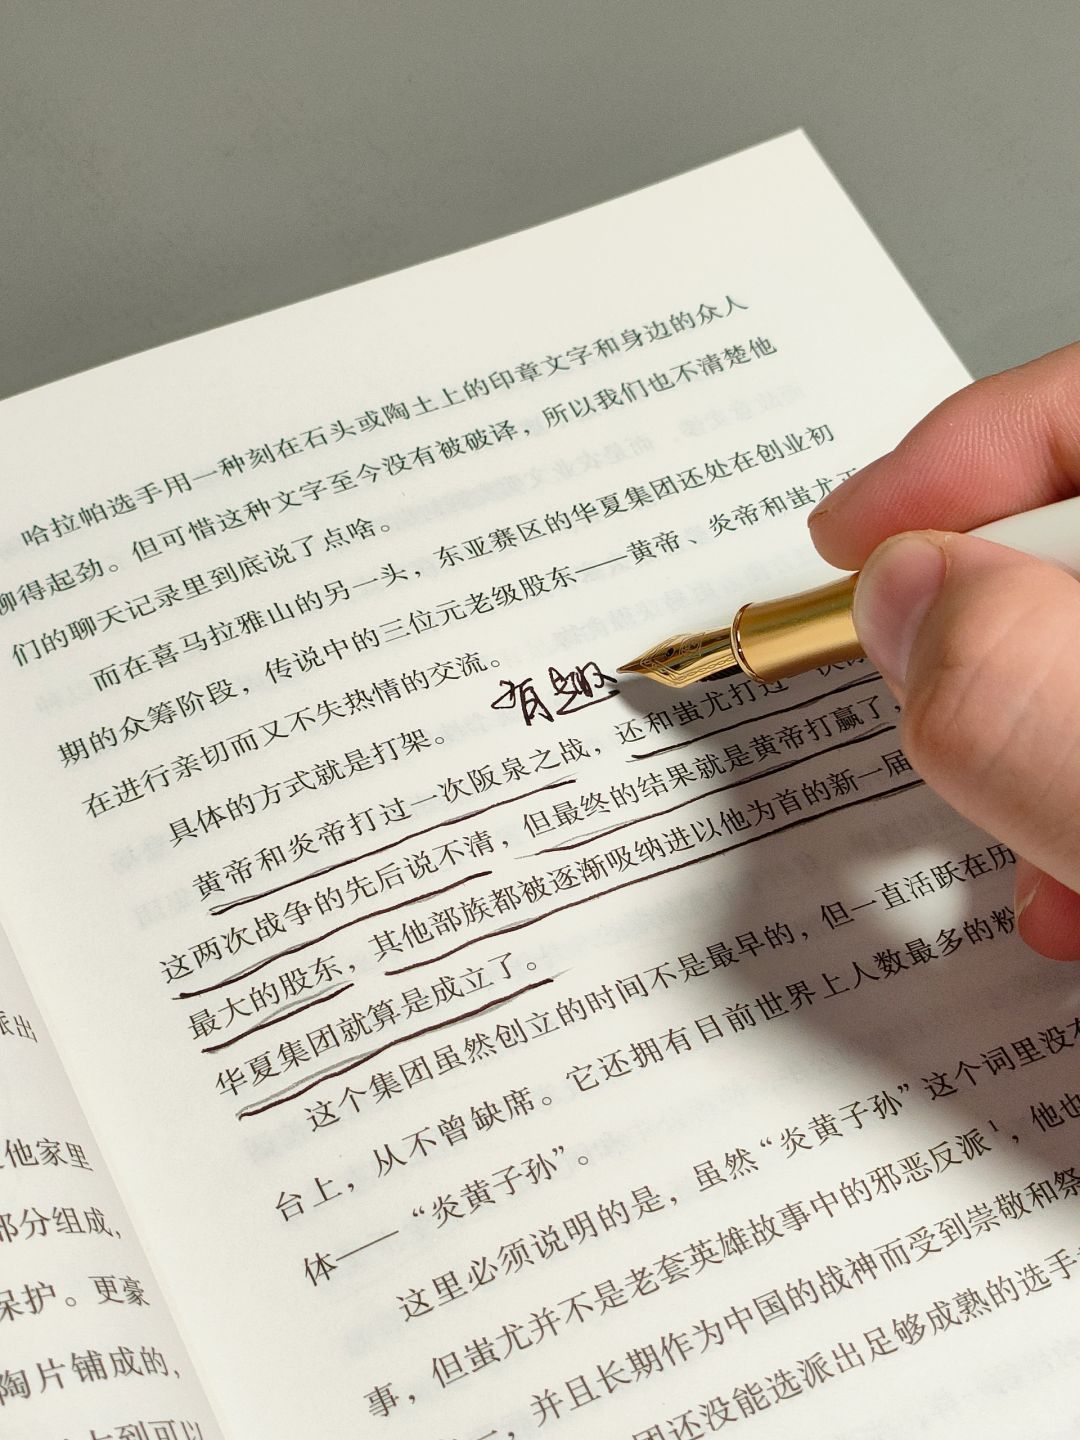 哈拉帕选手用一种刻在石头或陶土上的印章文字和身边的众人
聊得起劲。但可惜这种文字至今没有被破译，所以我们也不清楚他
们的聊天记录里到底说了点啥。
而在喜马拉雅山的另一头，东亚赛区的华夏集团还处在创业初
期的众筹阶段，传说中的三位元老级股东——黄帝、炎帝和蚩尤正
在进行亲切而又不失热情的交流。
有趣
具体的方式就是打架。
黄帝和炎帝打过一次阪泉之战，还和蚩尤打过一次
这两次战争的先后说不清，但最终的结果就是黄帝打赢了，
最大的股东，其他部族都被逐渐吸纳进以他为首的新一届
华夏集团就算是成立了。
这个集团虽然创立的时间不是最早的，但一直活跃在历
台上，从不曾缺席。它还拥有目前世界上人数最多的粉
体——“炎黄子孙”。
这里必须说明的是，虽然“炎黄子孙”这个词里没有
事，但蚩尤并不是老套英雄故事中的邪恶反派1，他也
，并且长期作为中国的战神而受到崇敬和祭
团还没能选派出足够成熟的选手
派出
他家里
部分组成，
保护。更豪
陶片铺成的，
到可以